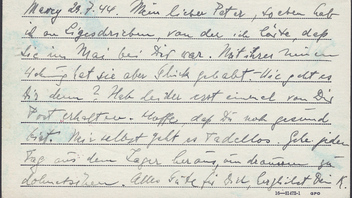 Mexey 20.7.44. Mein lieber Peter, soeben hab
ich an geschrieben, von der ich hörte, daß
sie im Mai bei Dir war. Mit ihrer neuen
hat sie aber Glück gehabt – Wie geht es
Dir denn? Hab leider erst einmal von Dir
Post erhalten. Hoffe, daß Du noch gesund
bist. Mir selbst geht es tadellos. Gehe jeden
Tag aus dem Lager heraus, um draussen zu
dolmetschen. Alles Gute für Dich, herzlichst Dein K.
GPO